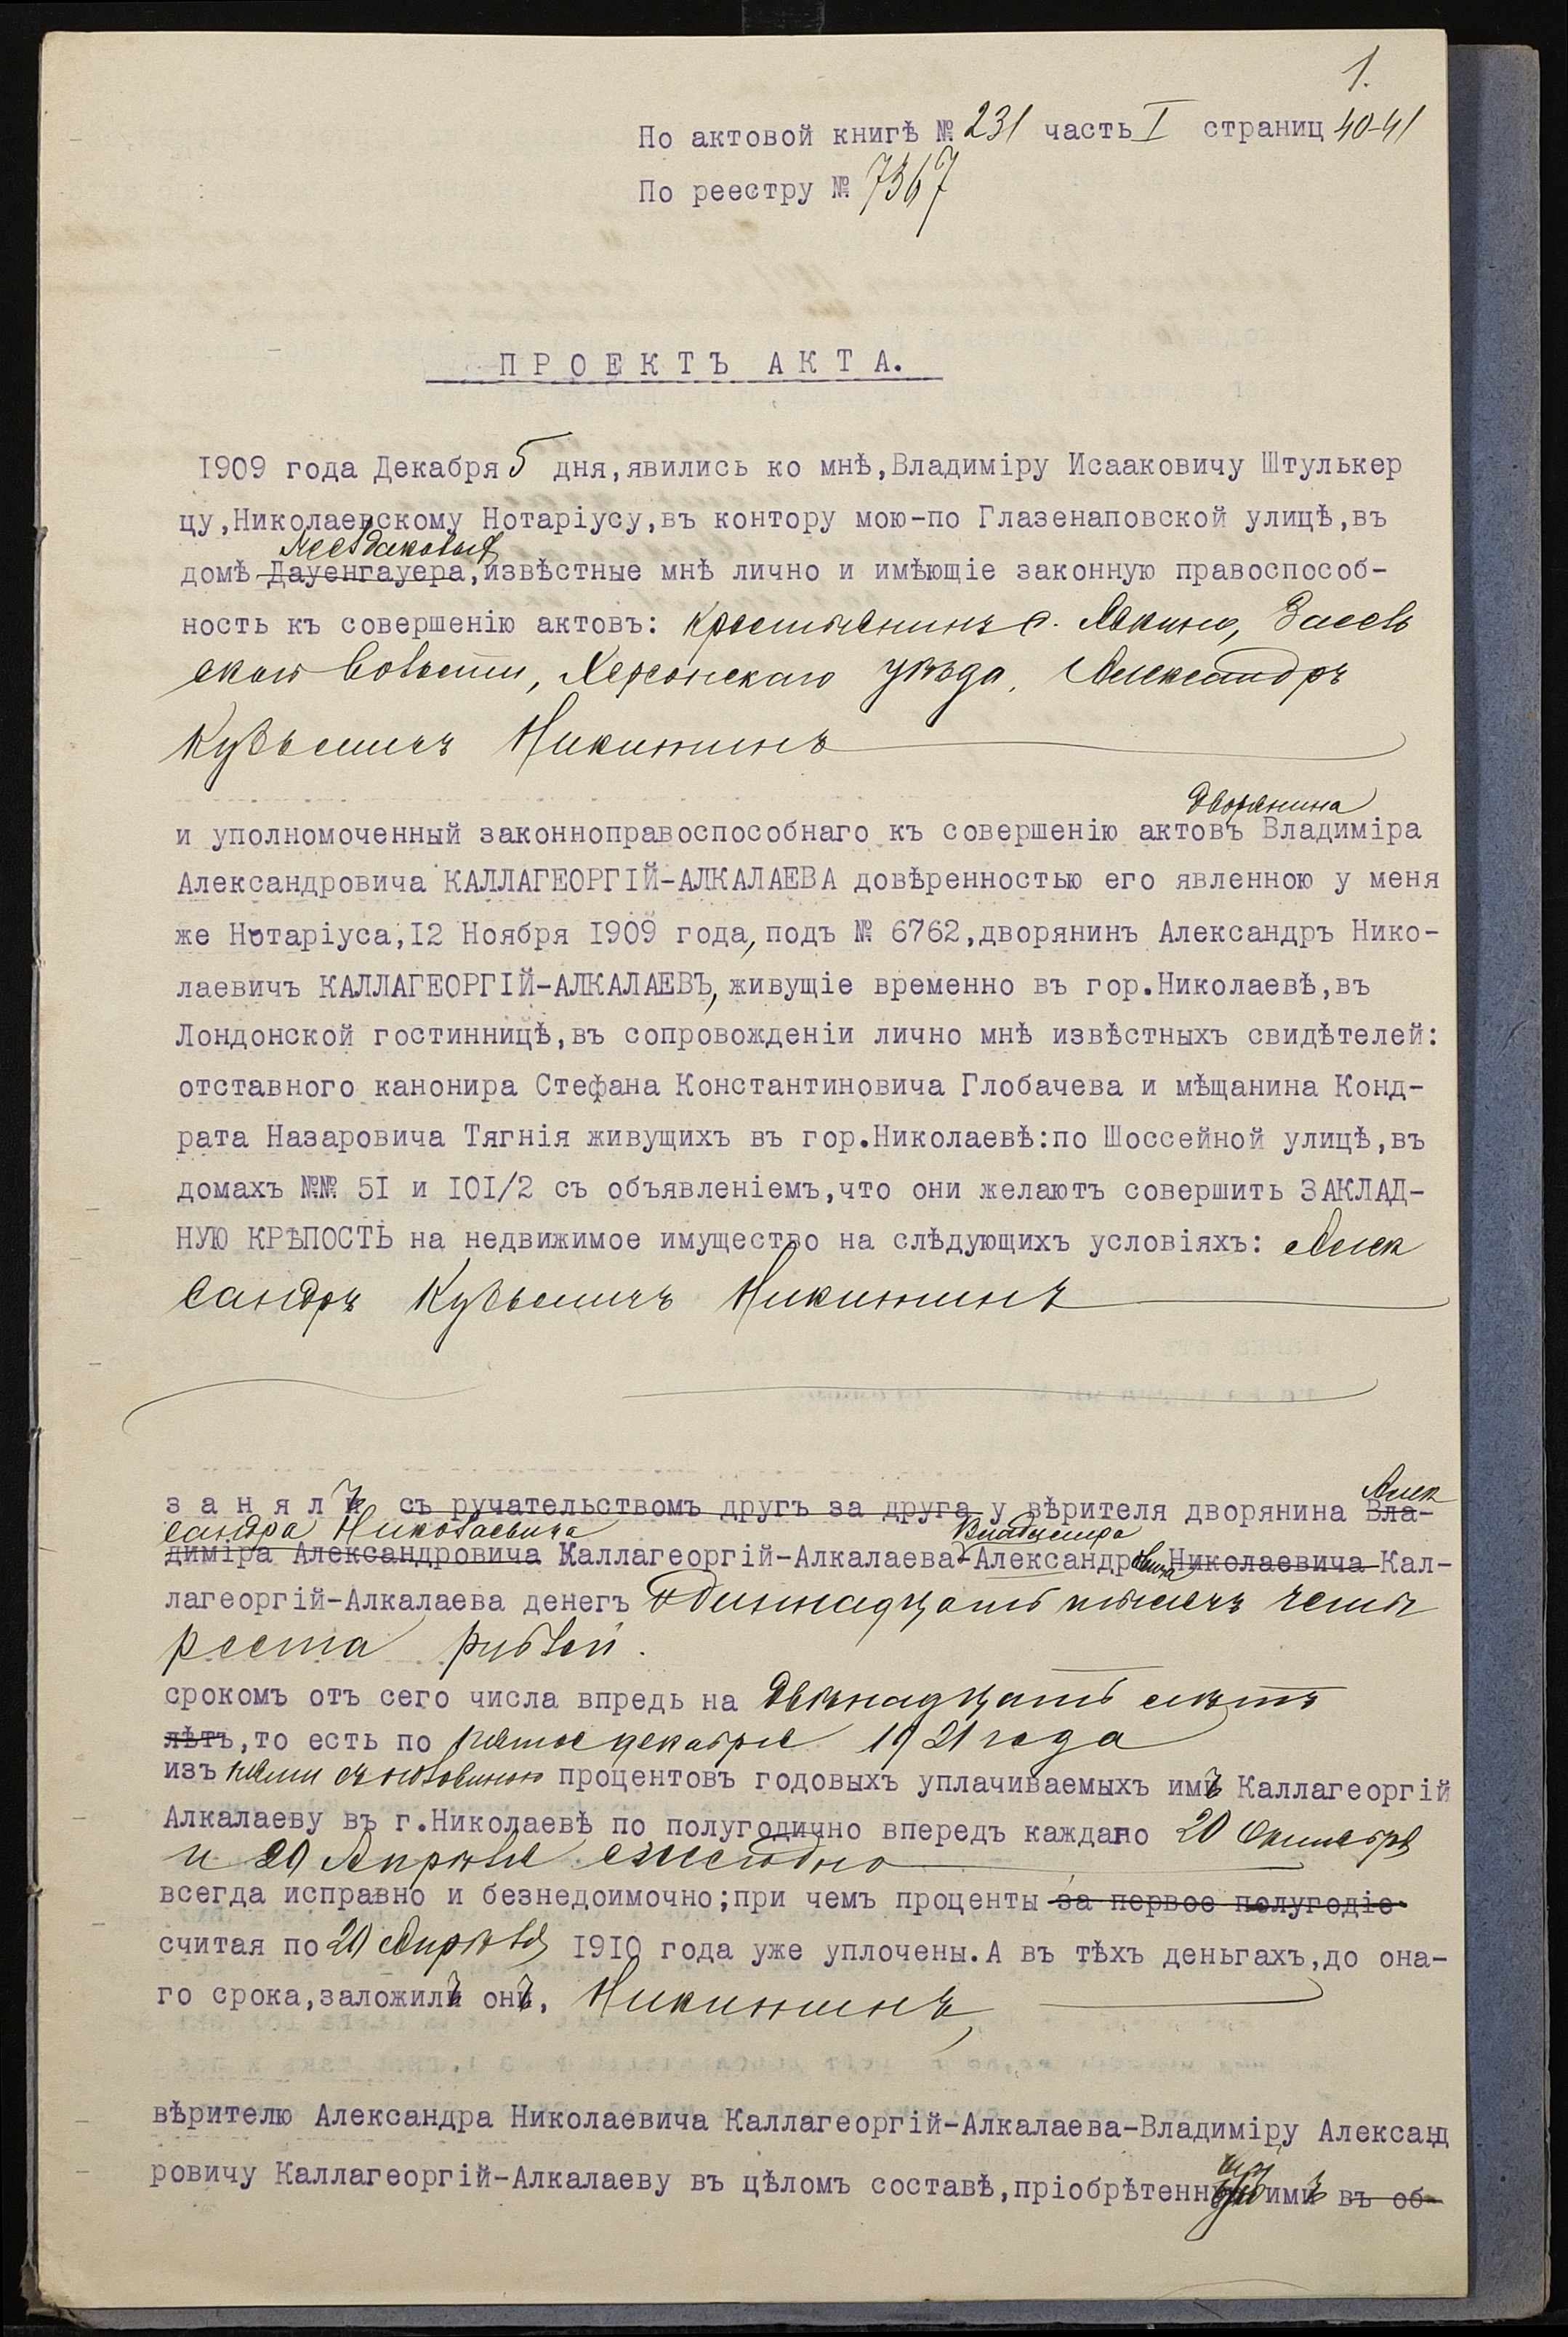 1.
По актовой книгѣ № 231 часть I страниц 40-41
По реестру № 7367
ПРОЕКТЪ АКТА.
1909 года Декабря 5 дня,явились ко мнѣ,Владиміру Исааковичу Штулькер
цу,Николаевскому Нотаріусу,въ контору мою-по Глазенаповской улицѣ,въ
домѣ Дауенгауера,извѣстные мнѣ лично и имѣющіе законную правоспособ-
ность къ совершенію актовъ: крестьянинъ с. Засель
ской волости, Херсонскаго уѣзда, Александръ
Кузьмичъ Никишинъ
дворянина
и уполномоченный законноправоспособнаго къ совершенію актовъ Владиміра
Александровича КАЛЛАГЕОРГІЙ-АЛКАЛАЕВА довѣренностью его явленною у меня
же Нотаріуса,12 Ноября 1909 года, подъ № 6762,дворянинъ Александръ Нико-
лаевичъ КАЛЛАГЕОРГІЙ-АЛКАЛАЕВЪ, живущіе временно въ гор.Николаевѣ,въ
Лондонской гостинницѣ,въ сопровожденіи лично мнѣ извѣстныхъ свидѣтелей:
отставного канонира Стефана Константиновича Глобачева и мѣщанина Конд-
рата Назаровича Тягнія живущихъ въ гор.Николаевѣ:по Шоссейной улицѣ,въ
домахъ №№ 51 и 101/2 съ объявленіемъ,что они желаютъ совершить ЗАКЛАД-
НУЮ КРѢПОСТЬ на недвижимое имущество на слѣдующихъ условіяхъ: Алек
сандръ Кузьмичъ Никишинъ
Алек
занялъ съ ручательствомъ другъ за друга у вѣрителя дворянина Вла-
сандра Николаевича Владимира
диміра Александровича Каллагеоргій-Алкалаева-Александровича Николаевича Кал-
лагеоргій-Алкалаева денегъ одиннадцать тысячъ четы
реста рублей.
срокомъ отъ сего числа впредь на двѣнадцать лѣтъ
лѣтъ,то есть по пятое декабря 1921 года
изъ пяти съ половиною процентовъ годовыхъ уплачиваемыхъ имъ Каллагеоргій
Алкалаеву въ г.Николаевѣ по полугодично впередъ каждаго 20 Октября
и 20 Апрѣля ежегодно
всегда исправно и безнедоимочно;при чемъ проценты за первое полугодіе
считая по 20 Апрѣля 1910 года уже уплочены.А въ тѣхъ деньгахъ,до она-
го срока,заложилъ онъ, Никишинъ,
вѣрителю Александра Николаевича Каллагеоргій-Алкалаева-Владиміру Александ
ровичу Каллагеоргій-Алкалаеву въ цѣломъ составѣ,пріобрѣтенн имъ въ об-